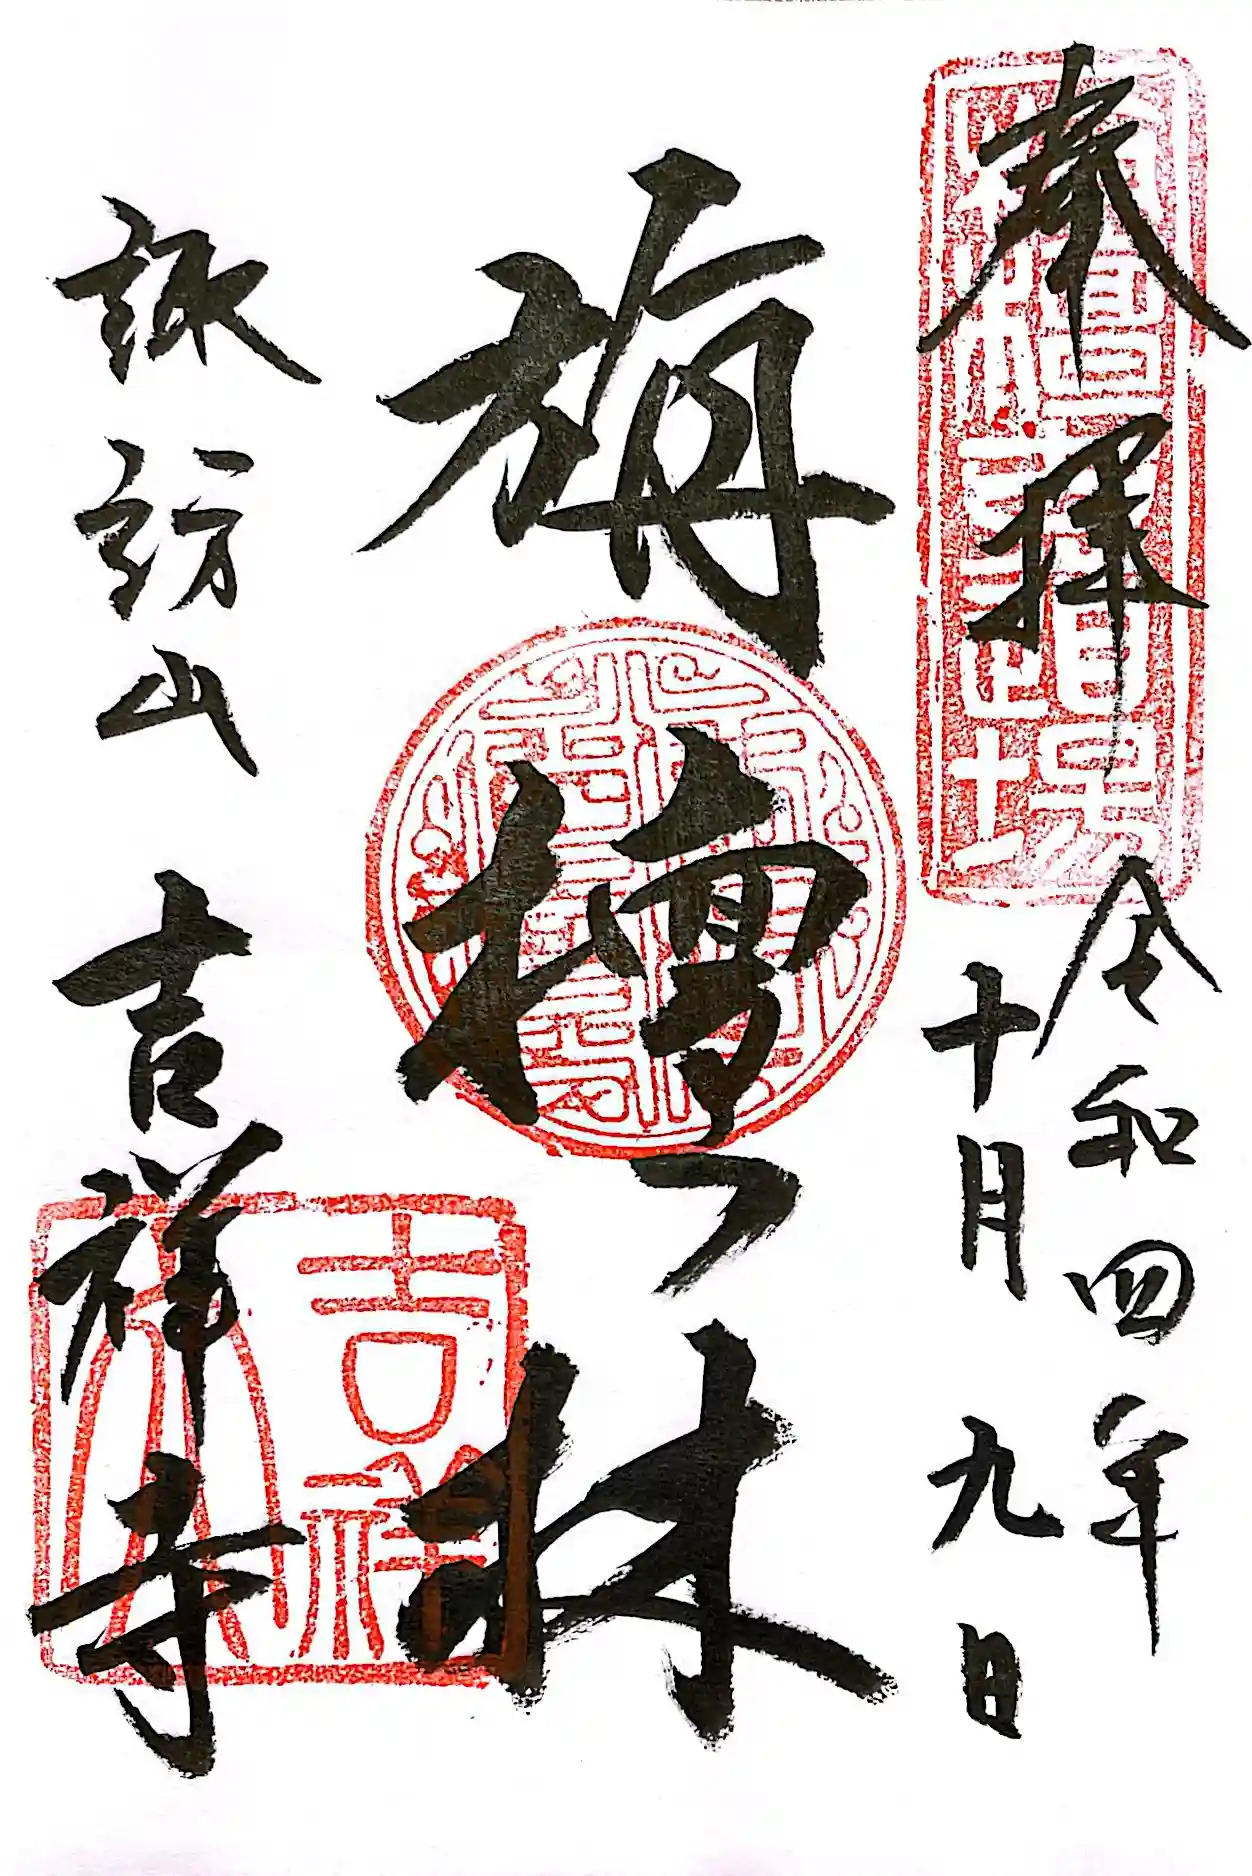 奉拝
令和四年
十月九日
旃檀林
諏訪山 吉祥寺
吉祥